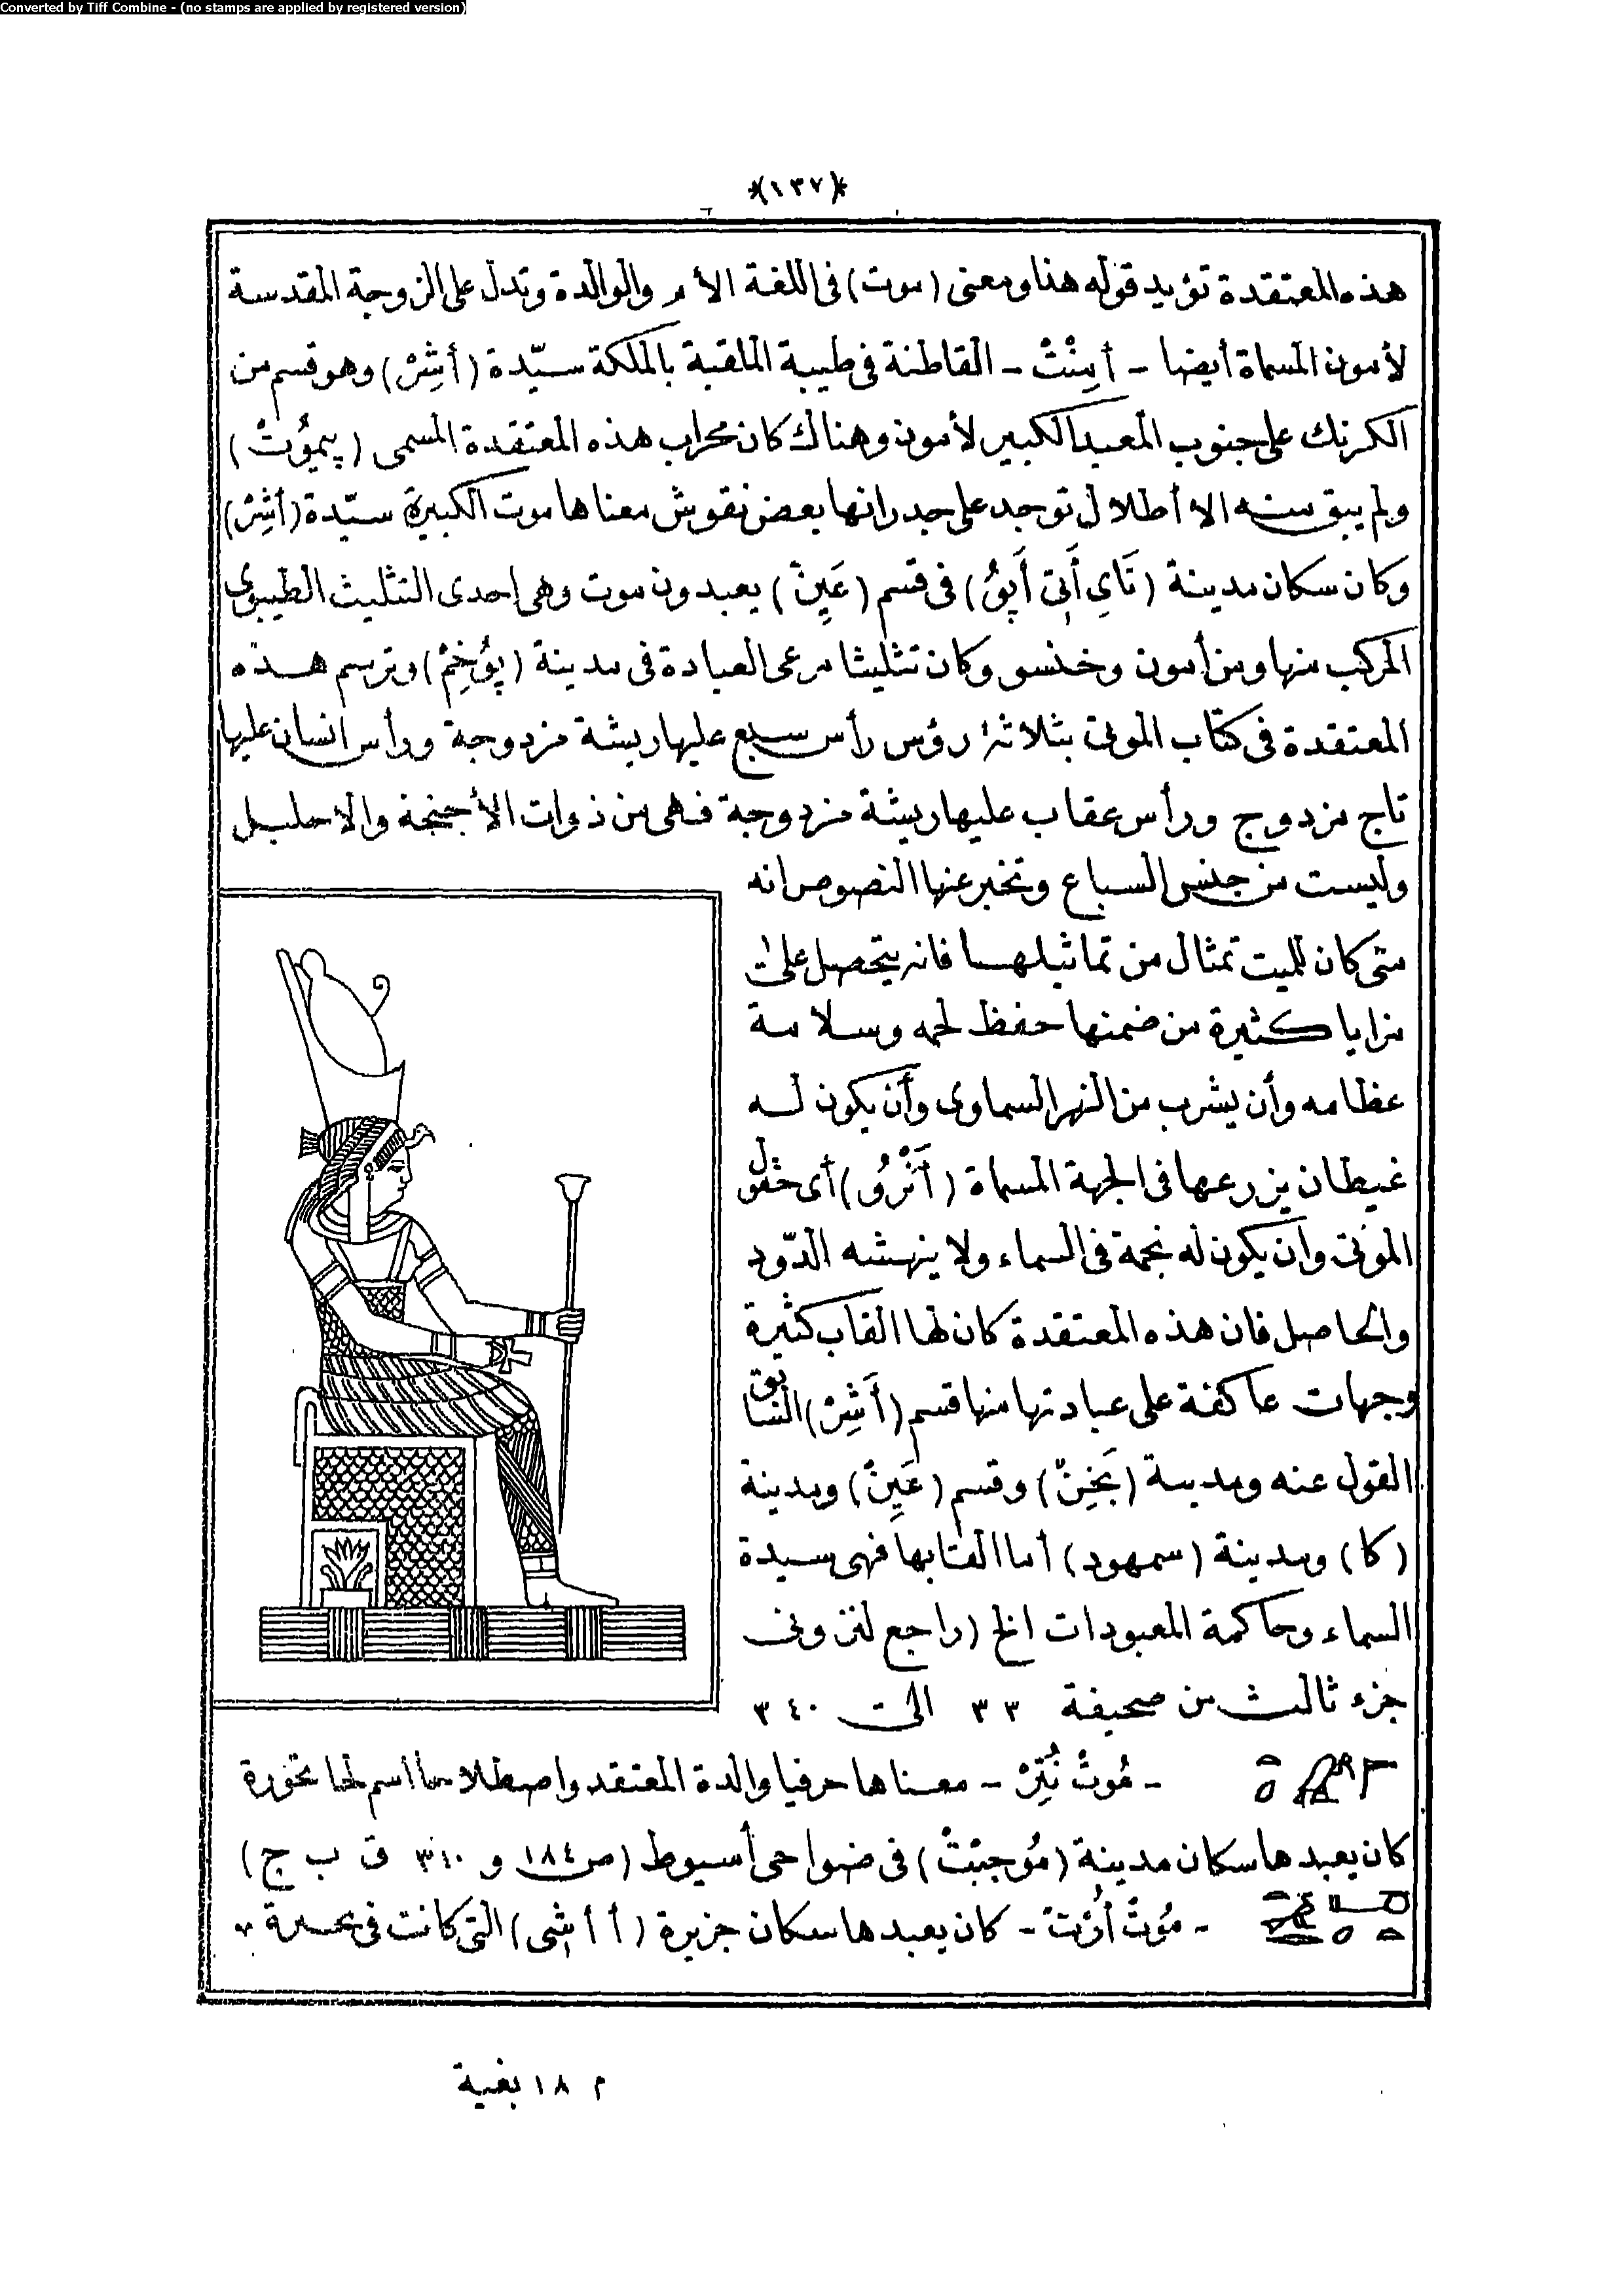 Converted by Tiff Combine - (no stamps are applied by registered version)
*(١٣٧)*
هذه المعتقدة تؤيد قوله هنا ومعنى (موت) فى اللغة الأم والوالدة وتدل على الزوجة المقدسة
لأمون المسماة أيضا - أمِنْتْ - القاطنة فى طيبة الملقبة بالملكة سيّدة (أشِرْ) وهو قسم من
الكرنك على جنوب المعبد الكبير لأمون وهناك كان محراب هذه المعتقدة المسمى (پيمُوتْ)
ولم يبق منه الا أطلال توجد على جدرانها بعض نقوش معناها موت الكبيرة سيّدة (أشِرْ)
وكان سكان مدينة (تَاىِ أَبِّى أَپُو) فى قسم (عَپِنْ) يعبدون موت وهى إحدى التثليث الطيبوى
المركب منها ومن أمون وخنسو وكان تثليثا مرعى العبادة فى مدينة (پُوخِمْ) وترسم هذه
المعتقدة فى كتاب الموتى بثلاثة رؤس رأس سبع عليها ريشة مزدوجة ورأس انسان عليها
تاج مزدوج ورأس عقاب عليها ريشة مزدوجة فهى من ذوات الأجنحة والاحليل
وليست من جنس السباع وتخبر عنها النصوص انه
متى كان للميت تمثال من تماثيلها فانه يتحصل على
مزايا كثيرة من ضمنها حفظ لحمه وسلامة
عظامه وأن يشرب من النهر السماوى وأن يكون له
غيطان يزرعها فى الجهة المسماة (أَنْرُو) أى حقول
الموتى وان يكون له نجمة فى السماء ولا ينهشه الدّود
والحاصل فان هذه المعتقدة كان لها القاب كثيرة
وجهات عاكفة على عبادتها منها قسم (أَشِرْ) السابق
القول عنه ومدينة (بَخِنْ) وقسم (عَپِنْ) ومدينة
(كا) ومدينة (سمهود) أما القابها فهى سيدة
السماء وحاكمة المعبودات الخ (راجع لنزونى
جزء ثالث من صحيفة ٣٣ الى ٣٤٠
- مُوتْ نُتِرْ - معناها حرفيا والدة المعتقد واصطلاحا اسم لحاتحورة
كان يعبدها سكان مدينة (مُوجِبْتْ) فى ضواحى أسيوط (ص ١٨٤ و ٣١٠ ق ب ج)
- مُوتْ أُرْتْ - كان يعبدها سكان جزيرة (أ أ شى) التى كانت فى بحيرة
م ١٨ بغية